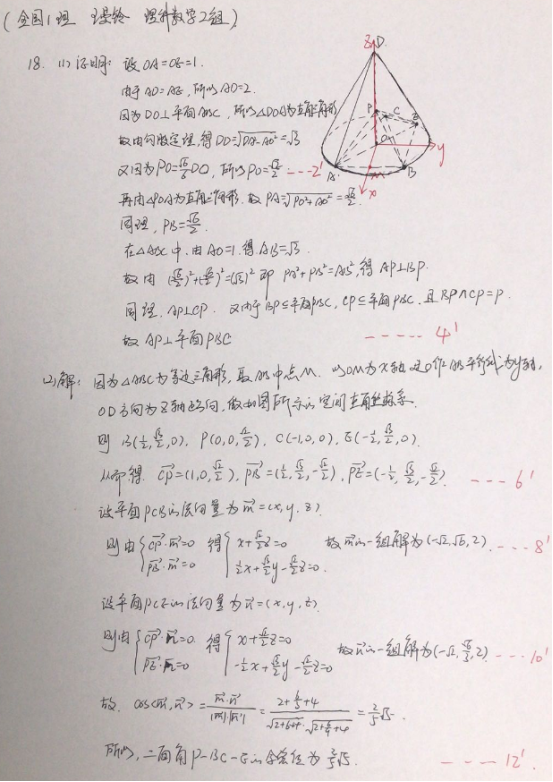 (全国1理 理科数学2组)
18. (1) 证明: 设OA=OE=1.
由于AD=AE, 所以AD=2.
因为DO⊥平面ABC, 所以△DOA为直角三角形
故由勾股定理, 得DO=√(DA²-AO²)=√3
又因为PO=√6/6 DO, 所以PO=√2/2 ---2'
再由△POA为直角三角形, 故PA=√(PO²+AO²)=√6/2.
同理, PB=√6/2.
在△ABC中, 由AO=1, 得AB=√3.
故由 (√6/2)²+(√6/2)²=(√3)² 即 PA²+PB²=AB², 得AP⊥BP.
同理, AP⊥CP. 又由于BP⊆平面PBC, CP⊆平面PBC, 且BP∩CP=P.
故AP⊥平面PBC ----- 4'
(2)解: 因为△ABC为等边三角形, 取AB中点M. 以OM为x轴, 过O作AB平行线为y轴,
OD方向为z轴正向, 做如图所示的空间直角坐标系.
则 B(1/2, √3/2, 0), P(0,0,√2/2), C(-1,0,0), E(-1/2, √3/2, 0).
从而得 CP=(1,0,√2/2), PB=(1/2, √3/2, -√2/2), PE=(-1/2, √3/2, -√2/2). --- 6'
设平面PCB的法向量为m=(x,y,z)
则由 {CP·m=0 PB·m=0 得 {x+√2/2z=0 1/2x+√3/2y-√2/2z=0. 故m的一组解为(-√2,√6,2). --- 8'
设平面PCE的法向量为n=(x,y,z).
则由 {CP·n=0 PE·n=0 得 {x+√2/2z=0 -1/2x+√3/2y-√2/2z=0 故n的一组解为(-√2, √6/3, 2) --- 10'
故 cos<m,n>=m·n/|m||n|=(2+6/3+4)/(√(2+6+4)·√(2+6/9+4))=2/5√5.
所以, 二面角P-BC-E的余弦值为2/5√5. --- 12'
z
D
P
C
E
O
y
A
M
B
x